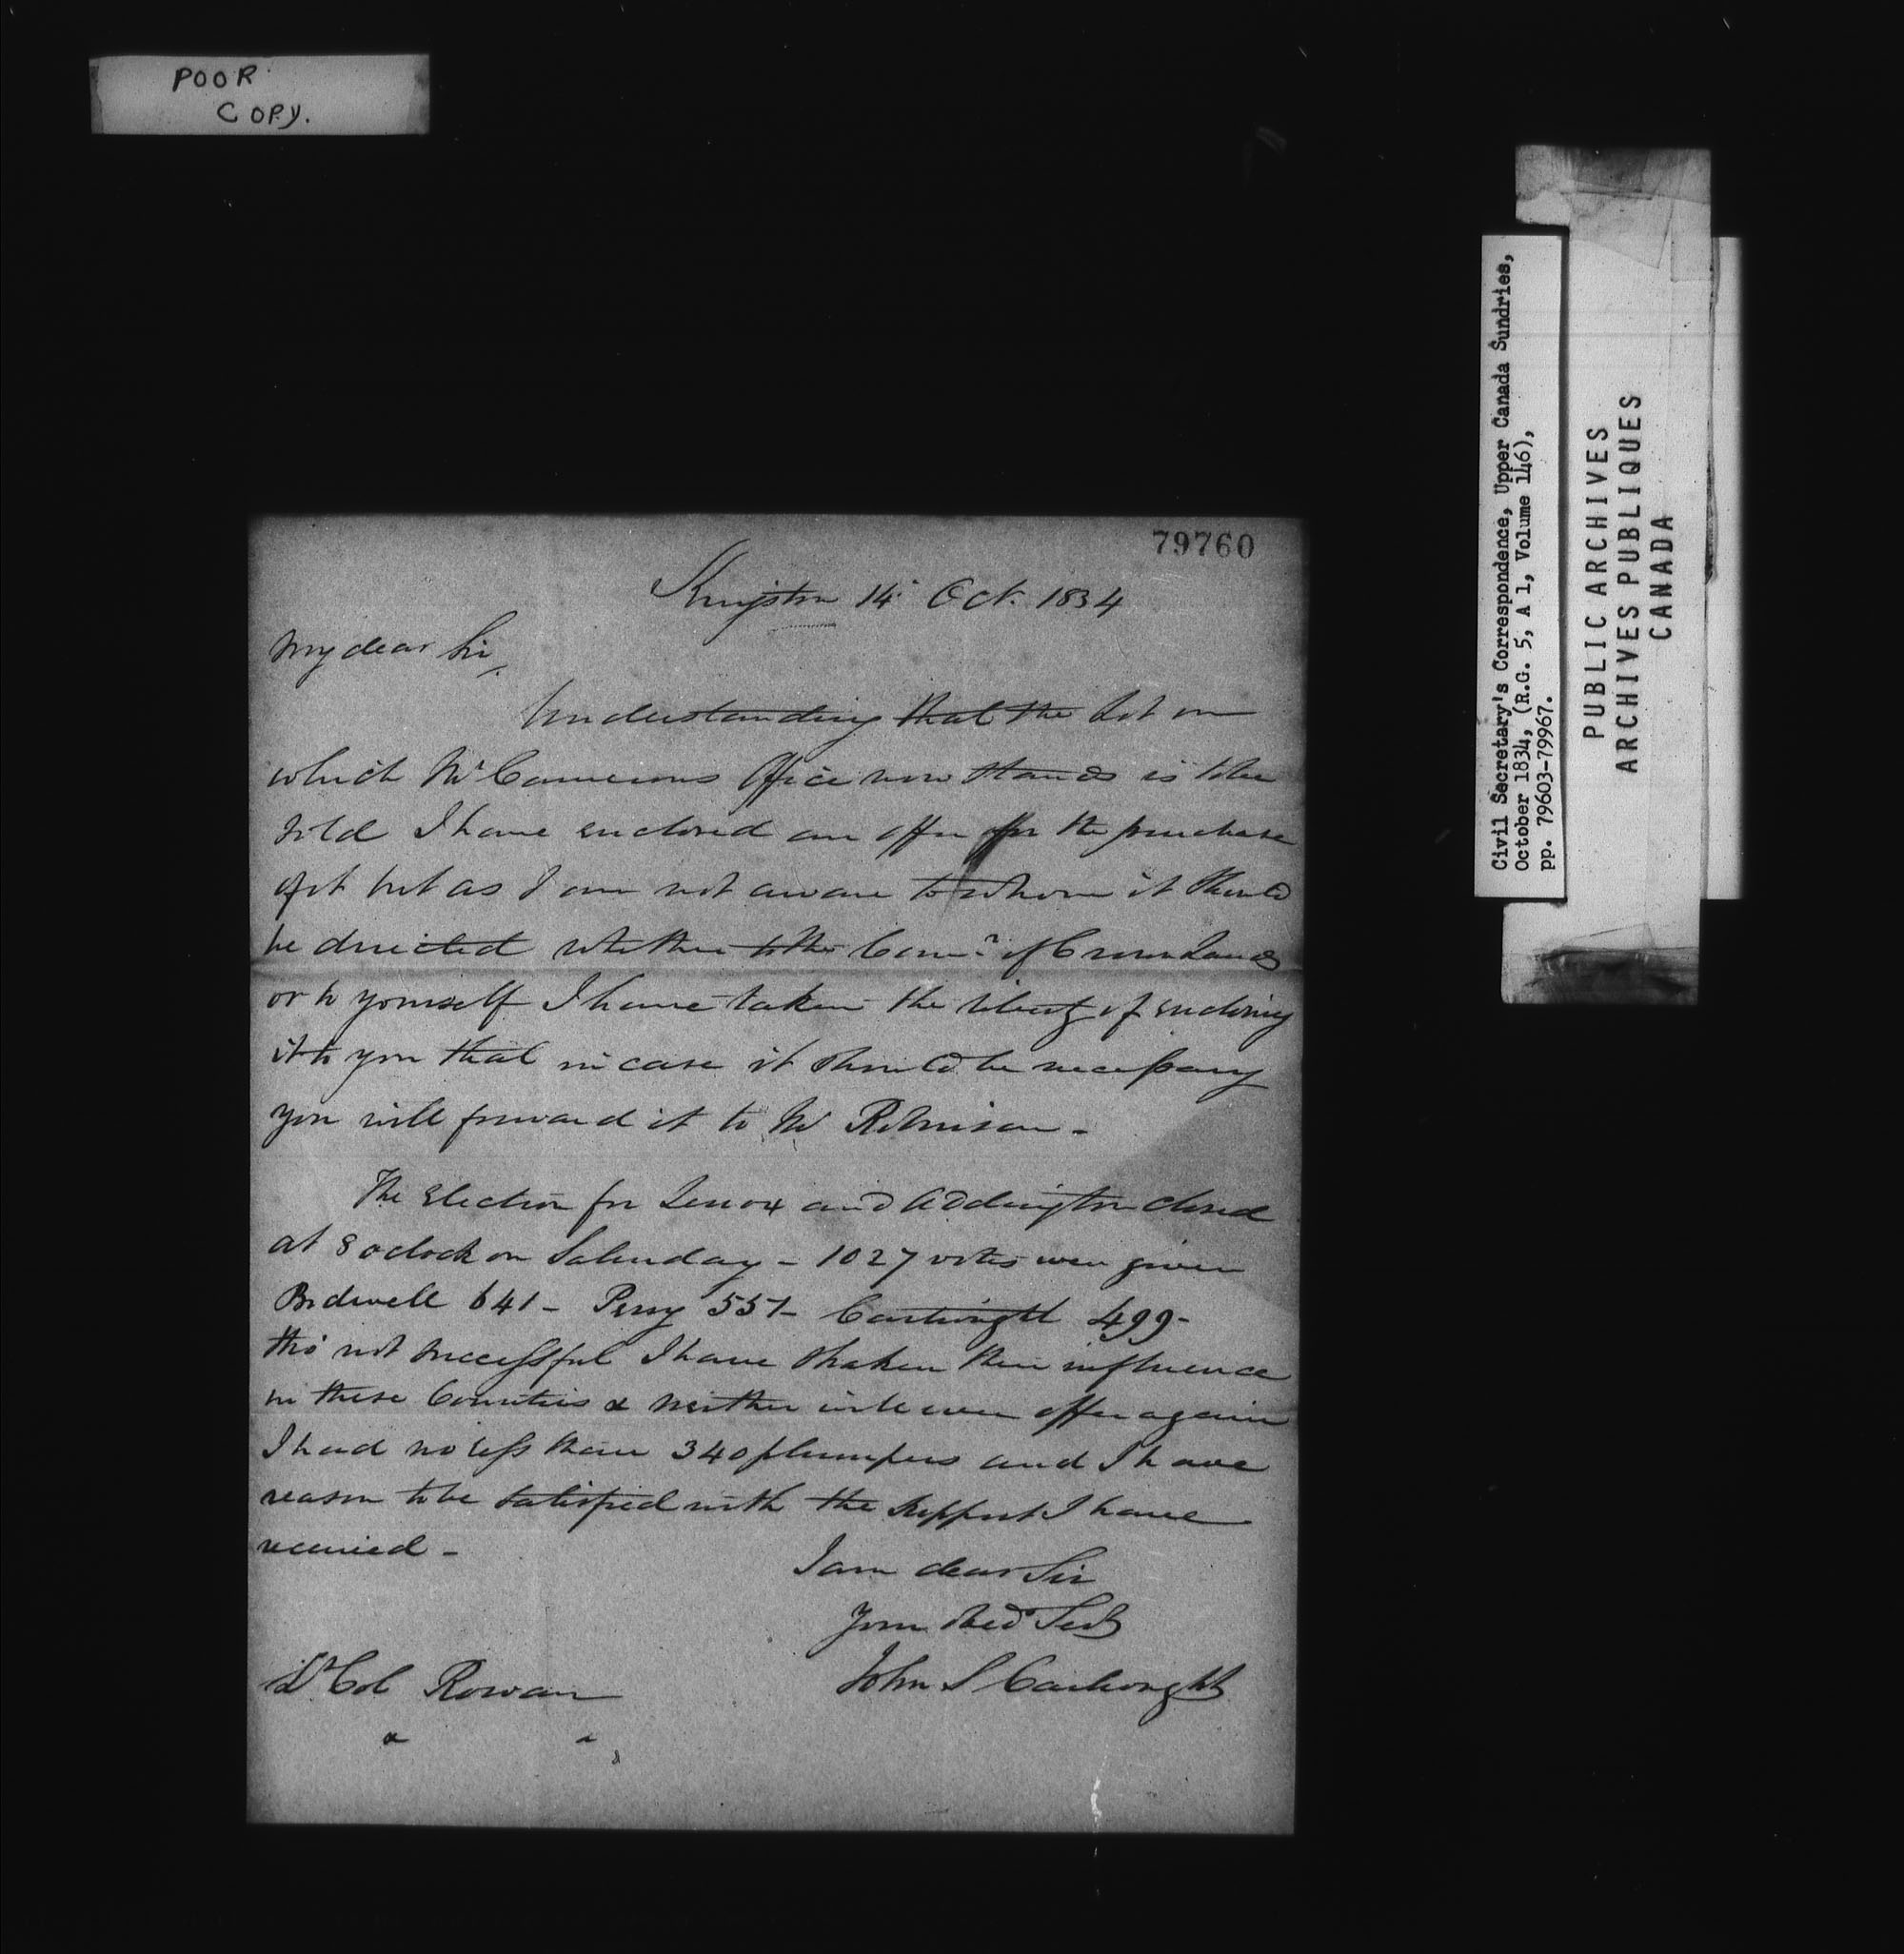 POOR
COPY.
79760
Kingston 14 Oct. 1834
My dear Sir,
Understanding that the Lot on
which Mr Camerons Office now stands is to be
sold I have enclosed an offer for the purchase
of it but as I am not aware to whom it should
be directed whether to the Comr. of Crown Lands
or to yourself I have taken the liberty of enclosing
it to you that in case it should be necessary
you will forward it to Mr Robinson -
The Election for Lenox and Addington closed
at 8 oclock on Saturday - 1027 votes were given
Bidwell 641 - Perry 557 - Cartwright 499 -
tho' not successful I have shaken their influence
in these Counties & neither will ever offer again
I had no less than 340 plumpers and I have
reason to be satisfied with the support I have
received -
I am dear Sir
Your Obed Ser
John S Cartwright
Lt Col Rowan
Civil Secretary's Correspondence, Upper Canada Sundries,
October 1834, (R.G. 5, A 1, Volume 146),
pp. 79603-79967.
PUBLIC ARCHIVES
ARCHIVES PUBLIQUES
CANADA